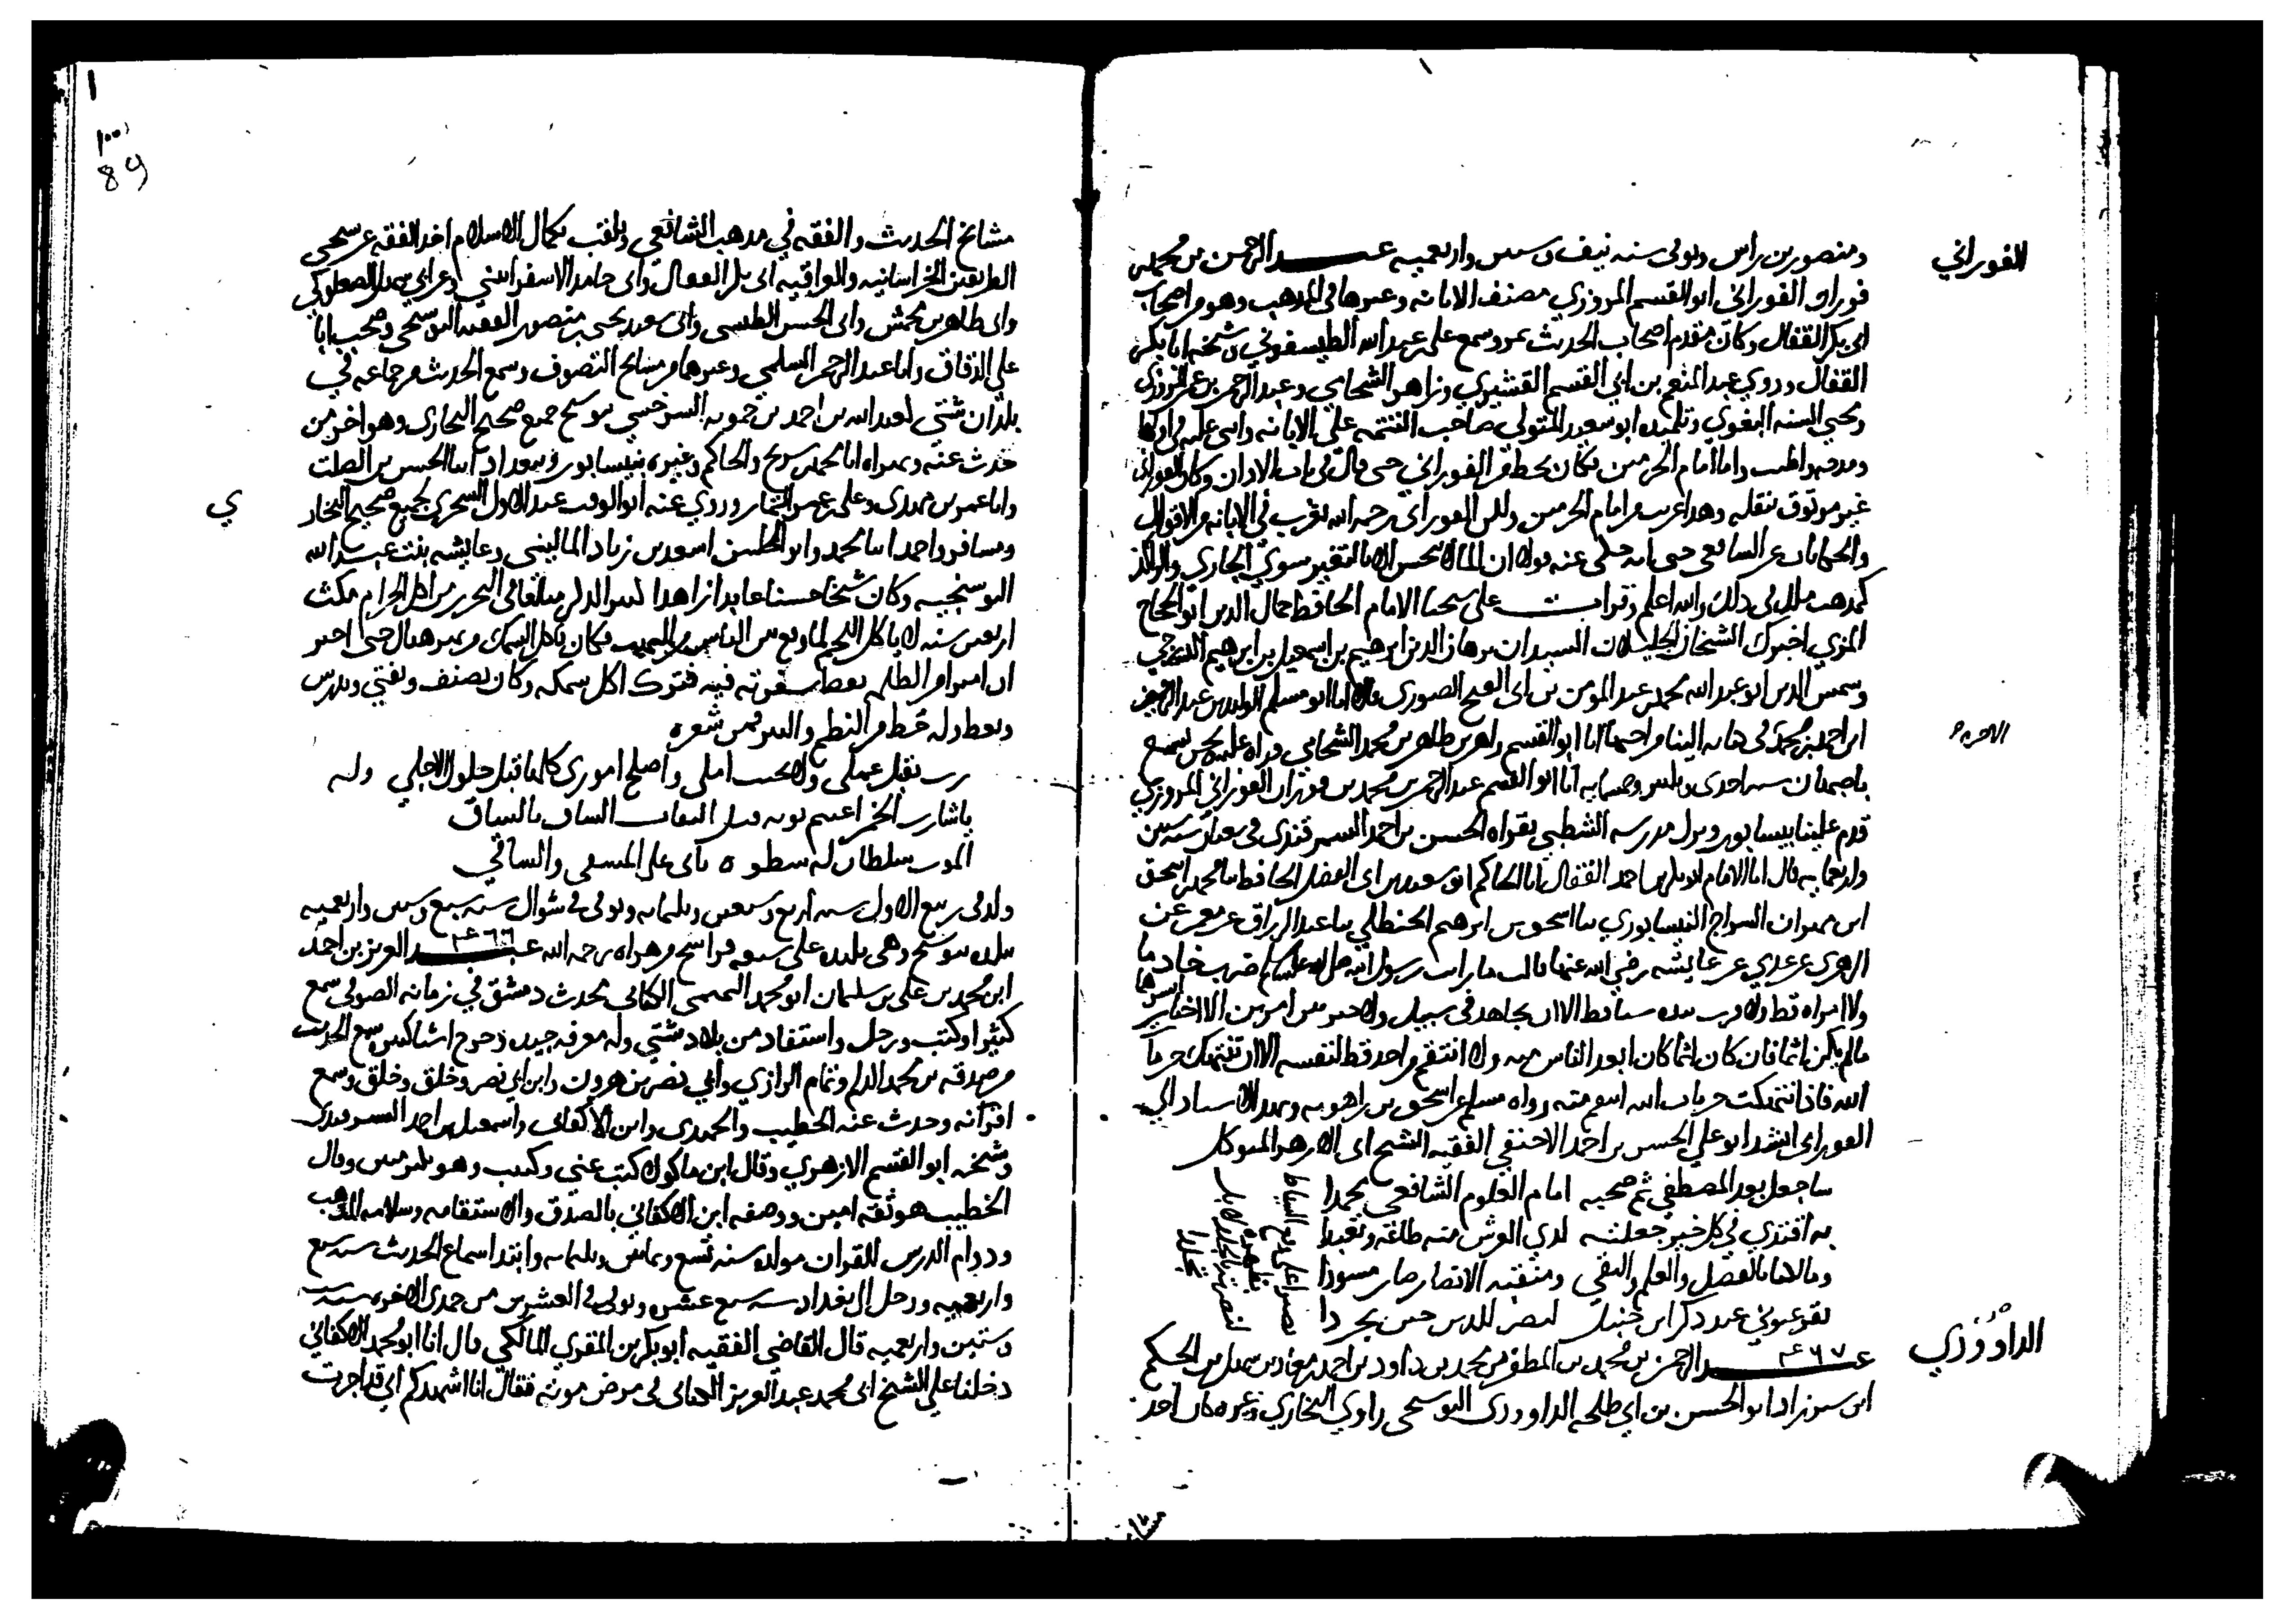 الفوراني
ومنصور بن راس وتوفى سنه نيف وستين واربعميه عبد الرحمن بن محمد بن
فوران الفوراني ابو القسم المروزي مصنف الابانه وغيرها في المذهب وهو من اصحاب
ابي بكر القفال وكان مقدم اصحاب الحديث بمرو سمع علي بن عبد الله الطيسفوني وشيخه ابا بكر
القفال وروي عبد المنعم بن ابي القسم القشيري وزاهر الشحامي وعبد الرحمن بن عمر المروزي
ومحيي السنه البغوي وتلميذه ابو سعد المتولي صاحب التتمه علي الابانه واثنى عليه في اولها
ومدحه واطنب واما امام الحرمين فكان يحط من الفوراني حتى قال في باب الاذان وكان الفوراني
غير موثوق بنقله وهذا غريب من امام الحرمين ولكن الفوراني رحمه الله يغرب في الابانه من الاقوال
والحكايات عن الشافعي حتى انه حكى عنه قولا ان الماء لا ينجس الا بالتغير سوي الجاري والراكد
كمذهب ملك في ذلك والله اعلم وقرات على شيخنا الامام الحافظ جمال الدين ابو الحجاج
المزي اخبرك الشيخان الجليلان السيدان برهان الدين ابرهيم بن اسمعيل بن ابرهيم الدرجي
وشمس الدين ابو عبد الله محمد بن عبد المومن بن ابي الفتح الصوري قالا انا ابو مسلم المويد بن عبد الرحيم
ابن احمد بن محمد في كتابه الينا من اصبهان انا ابو القسم زاهر بن طاهر بن محمد الشحامي قراه عليه ونحن نسمع
الاخوه
باصبهان سنه احدى وثلثين وخمسمايه انا ابو القسم عبد الرحمن بن محمد بن فوران الفوراني المروزي
قدم علينا نيسابور ونزل مدرسه الشطبي بقراه الحسن بن احمد السمرقندي في شعبان سنه ستين
واربعمايه قال انا الامام ابو بكر بن احمد القفال انا الحاكم ابو سعيد بن ابي الفضل الحافظ نا محمد بن اسحق
ابن مهران السراج النيسابوري نا اسحق بن ابرهيم الحنظلي نا عبد الرزاق عن معمر عن
الزهري عن عروه عن عايشه رضي الله عنها قالت ما رايت رسول الله صلى الله عليه وسلم ضرب خادما
ولا امراه قط ولا ضرب بيده شيا قط الا ان يجاهد في سبيل ولا خير بين امرين الا اختار ايسرهما
ما لم يكن اثما فان كان اثما كان ابعد الناس منه ولا انتقم من احد قط لنفسه الا ان تنتهك حرمات
الله فاذا انتهكت حرمات الله انتقم منه رواه مسلم عن اسحق بن راهويه وبهذا الاسناد الي
الفوراني انشد ابو علي الحسن بن احمد الاحنفي الفقيه الشيخ ابي الازهر المتوكل
ساجعل بعد المصطفي ثم صحبه امام العلوم الشافعي محمدا
به اقتدي في كل خير جعلته لدي العرش منه طاعه وتعبدا
وما لاهما بالفضل والعلم والتقي ومنقبه الانصار صار مسودا
تقر عيوني عند ذكر ابن حنبل لنصر للدين حين تجردا
الداوُوْدي
٤٦٧
عبد الرحمن بن محمد بن المظفر بن محمد بن داود بن احمد بن معاذ بن سهل بن الحكم
ابن شيرزاد ابو الحسن بن ابي طلحه الداوودي البوسنجي راوي البخاري وغيره كان احد
89
مشائخ الحديث والفقه في مذهب الشافعي ويلقب بجمال الاسلام اخذ الفقه عن شيخي
الطريقتين الخراسانيه والعراقيه ابي بكر القفال وابي حامد الاسفرايني وعن ابي سهل الصعلوكي
وابي طاهر بن محمش وابي الحسن الطبسي وابي سعيد يحيى بن منصور الفقيه البوسنجي وصحب ابا
علي الدقاق وابا عبد الرحمن السلمي وغيرهما من مشائخ التصوف وسمع الحديث من جماعه في
بلدان شتي لعبد الله بن احمد بن حمويه السرخسي ببوسنج جميع صحيح البخاري وهو اخر من
حدث عنه وبهراه ابا محمد بن سريح والحاكم وغيره بنيسابور وببغداد ابا الحسن بن الصلت
وابا عمر بن مهدي وعلي بن عمر التمار وروي عنه ابو الوقت عبد الاول السجزي بجميع صحيح البخار
ي
ومسافر واحمد ابنا محمد وابو المحاسن اسعد بن زياد الماليني وعايشه بنت عبد الله
البوسنجيه وكان شيخا حسنا عابدا زاهدا كبير القدر مبالغا في التحرير من اكل الحرام مكث
اربعين سنه لا ياكل اللحم لما وقع بين الناس من النهب فكان ياكل السمك من نهر هناك حتى اخبر
ان اميرا من الظلمه نفض سفرته فيه فترك اكل سمكه وكان يصنف ويفتي ويدرس
ويعظ وله حظ من النظم والنثر فمن شعره
رب تقبل عملي ولا تخيب املي واصلح اموري كلها قبل حلول الاجلي وله
يا شارب الخمر اغتنم توبه قبل التفاف الساق بالساق
الموت سلطان له سطوه ياتي على المسقي والساقي
ولد في ربيع الاول سنه اربع وسبعين وثلثمايه وتوفي في شوال سنه سبع وستين واربعميه
٤٦٦
ببلده بوسنج وهي بلده على سبعه فراسخ من هراه رحمه الله عبد العزيز بن احمد
ابن محمد بن علي بن سلمان ابو محمد التميمي الكتاني محدث دمشق في زمانه الصوفي سمع
كثيرا وكتب ورحل واستفاد من بلاد شتي وله معرفه جيده وخرج اشيا كثيره سمع الحديث
من صدقه بن محمد الدلم وتمام الرازي وابي نصر بن هرون وابن ابي نصر وخلق وخلق وسمع
اقرانه وحدث عنه الخطيب والحميدي وابن الاكفاني واسمعيل بن احمد السمرقندي
وشيخه ابو القسم الازهري وقال ابن ماكولا كتب عني وكتبت وهو مكثر متقن وقال
الخطيب هو ثقه امين ووصفه ابن الاكفاني بالصدق والاستقامه وسلامه المذهب
ودوام الدرس للقران مولده سنه تسع وثمانين وثلثمايه وابتدا سماع الحديث سنه سبع
واربعميه ورحل الي بغداد سنه سبع عشره وتوفي في العشرين من جمدي الاخره سنه ست
وستين واربعميه قال القاضي الفقيه ابو بكر بن المقوي المالكي قال انا ابو محمد الاكفاني
دخلنا علي الشيخ ابي محمد عبد العزيز الكتاني في مرض موته فقال انا اشهدكم اني قد اجزت